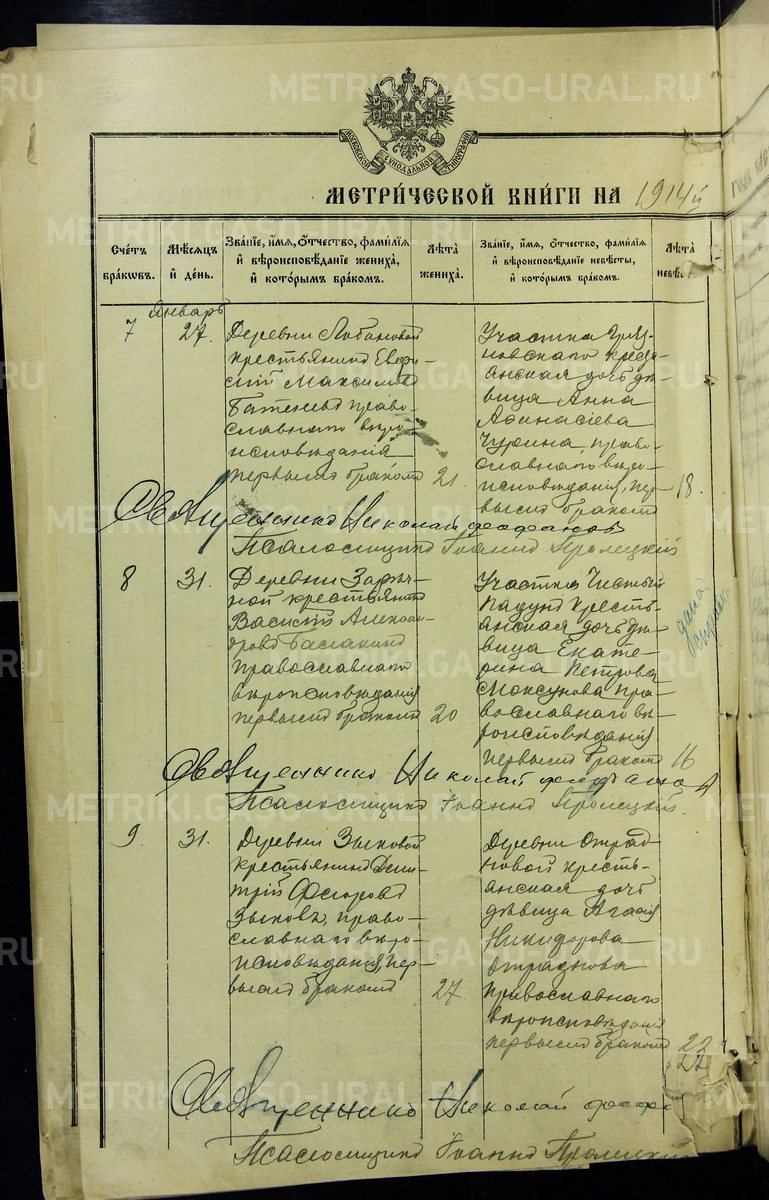 МОСКОВСКОЙ СѴНОДАЛЬНОЙ ТИПОГРАФІИ
МЕТРИ́ЧЕСКОЙ КНИ́ГИ НА 1914й
Сче́тъ бра́кѡвъ.
Мѣ́сяцъ и҆ де́нь.
Зва́нїе, и҆́мя, ѻ҆́тчество, фами́лїя и҆ вѣроисповѣ́данїе жениха̀, и҆ кото́рымъ бра́комъ.
Лѣ́та жениха̀.
Зва́нїе, и҆́мя, ѻ҆́тчество, фами́лїя и҆ вѣроисповѣ́данїе невѣ́сты, и҆ кото́рымъ бра́комъ.
Лѣ́та
Январь
7
27.
Деревни Лобановой
крестьянинъ
Максимовъ
право-
славнаго вѣро-
исповѣданія
первымъ бракомъ
21.
Участка
новскаго кресть-
янская дочь дѣ-
вица Анна
Афанасіева
Чурина, право-
славнаго вѣро-
исповѣданія, пер-
вымъ бракомъ
18.
Священникъ Николай Феофановъ
Псаломщикъ Іоаннъ
8
31.
Деревни Зарѣч-
ной крестьянинъ
Алексан-
дровъ
православнаго
вѣроисповѣданія
первымъ бракомъ
20
Участка Чистый
Падунъ кресть-
янская дочь дѣ-
вица Екате-
рина Петрова
Моксунова пра-
вославнаго вѣ-
роисповѣданія
первымъ бракомъ
16
дана
справка
Священникъ Николай Феофановъ
Псаломщикъ Іоаннъ
9.
31.
Деревни Зыковой
крестьянинъ Дми-
трій Ѳедоровъ
Зыковъ, право-
славнаго вѣро-
исповѣданія, пер-
вымъ бракомъ
27
Деревни Отрад-
новой кресть-
янская дочь
дѣвица Агафія
Никифорова
Отраднова
православнаго
вѣроисповѣданія
первымъ бракомъ
22
22
Священникъ Николай
Псаломщикъ Іоаннъ
METRIKI.GASO-URAL.RU